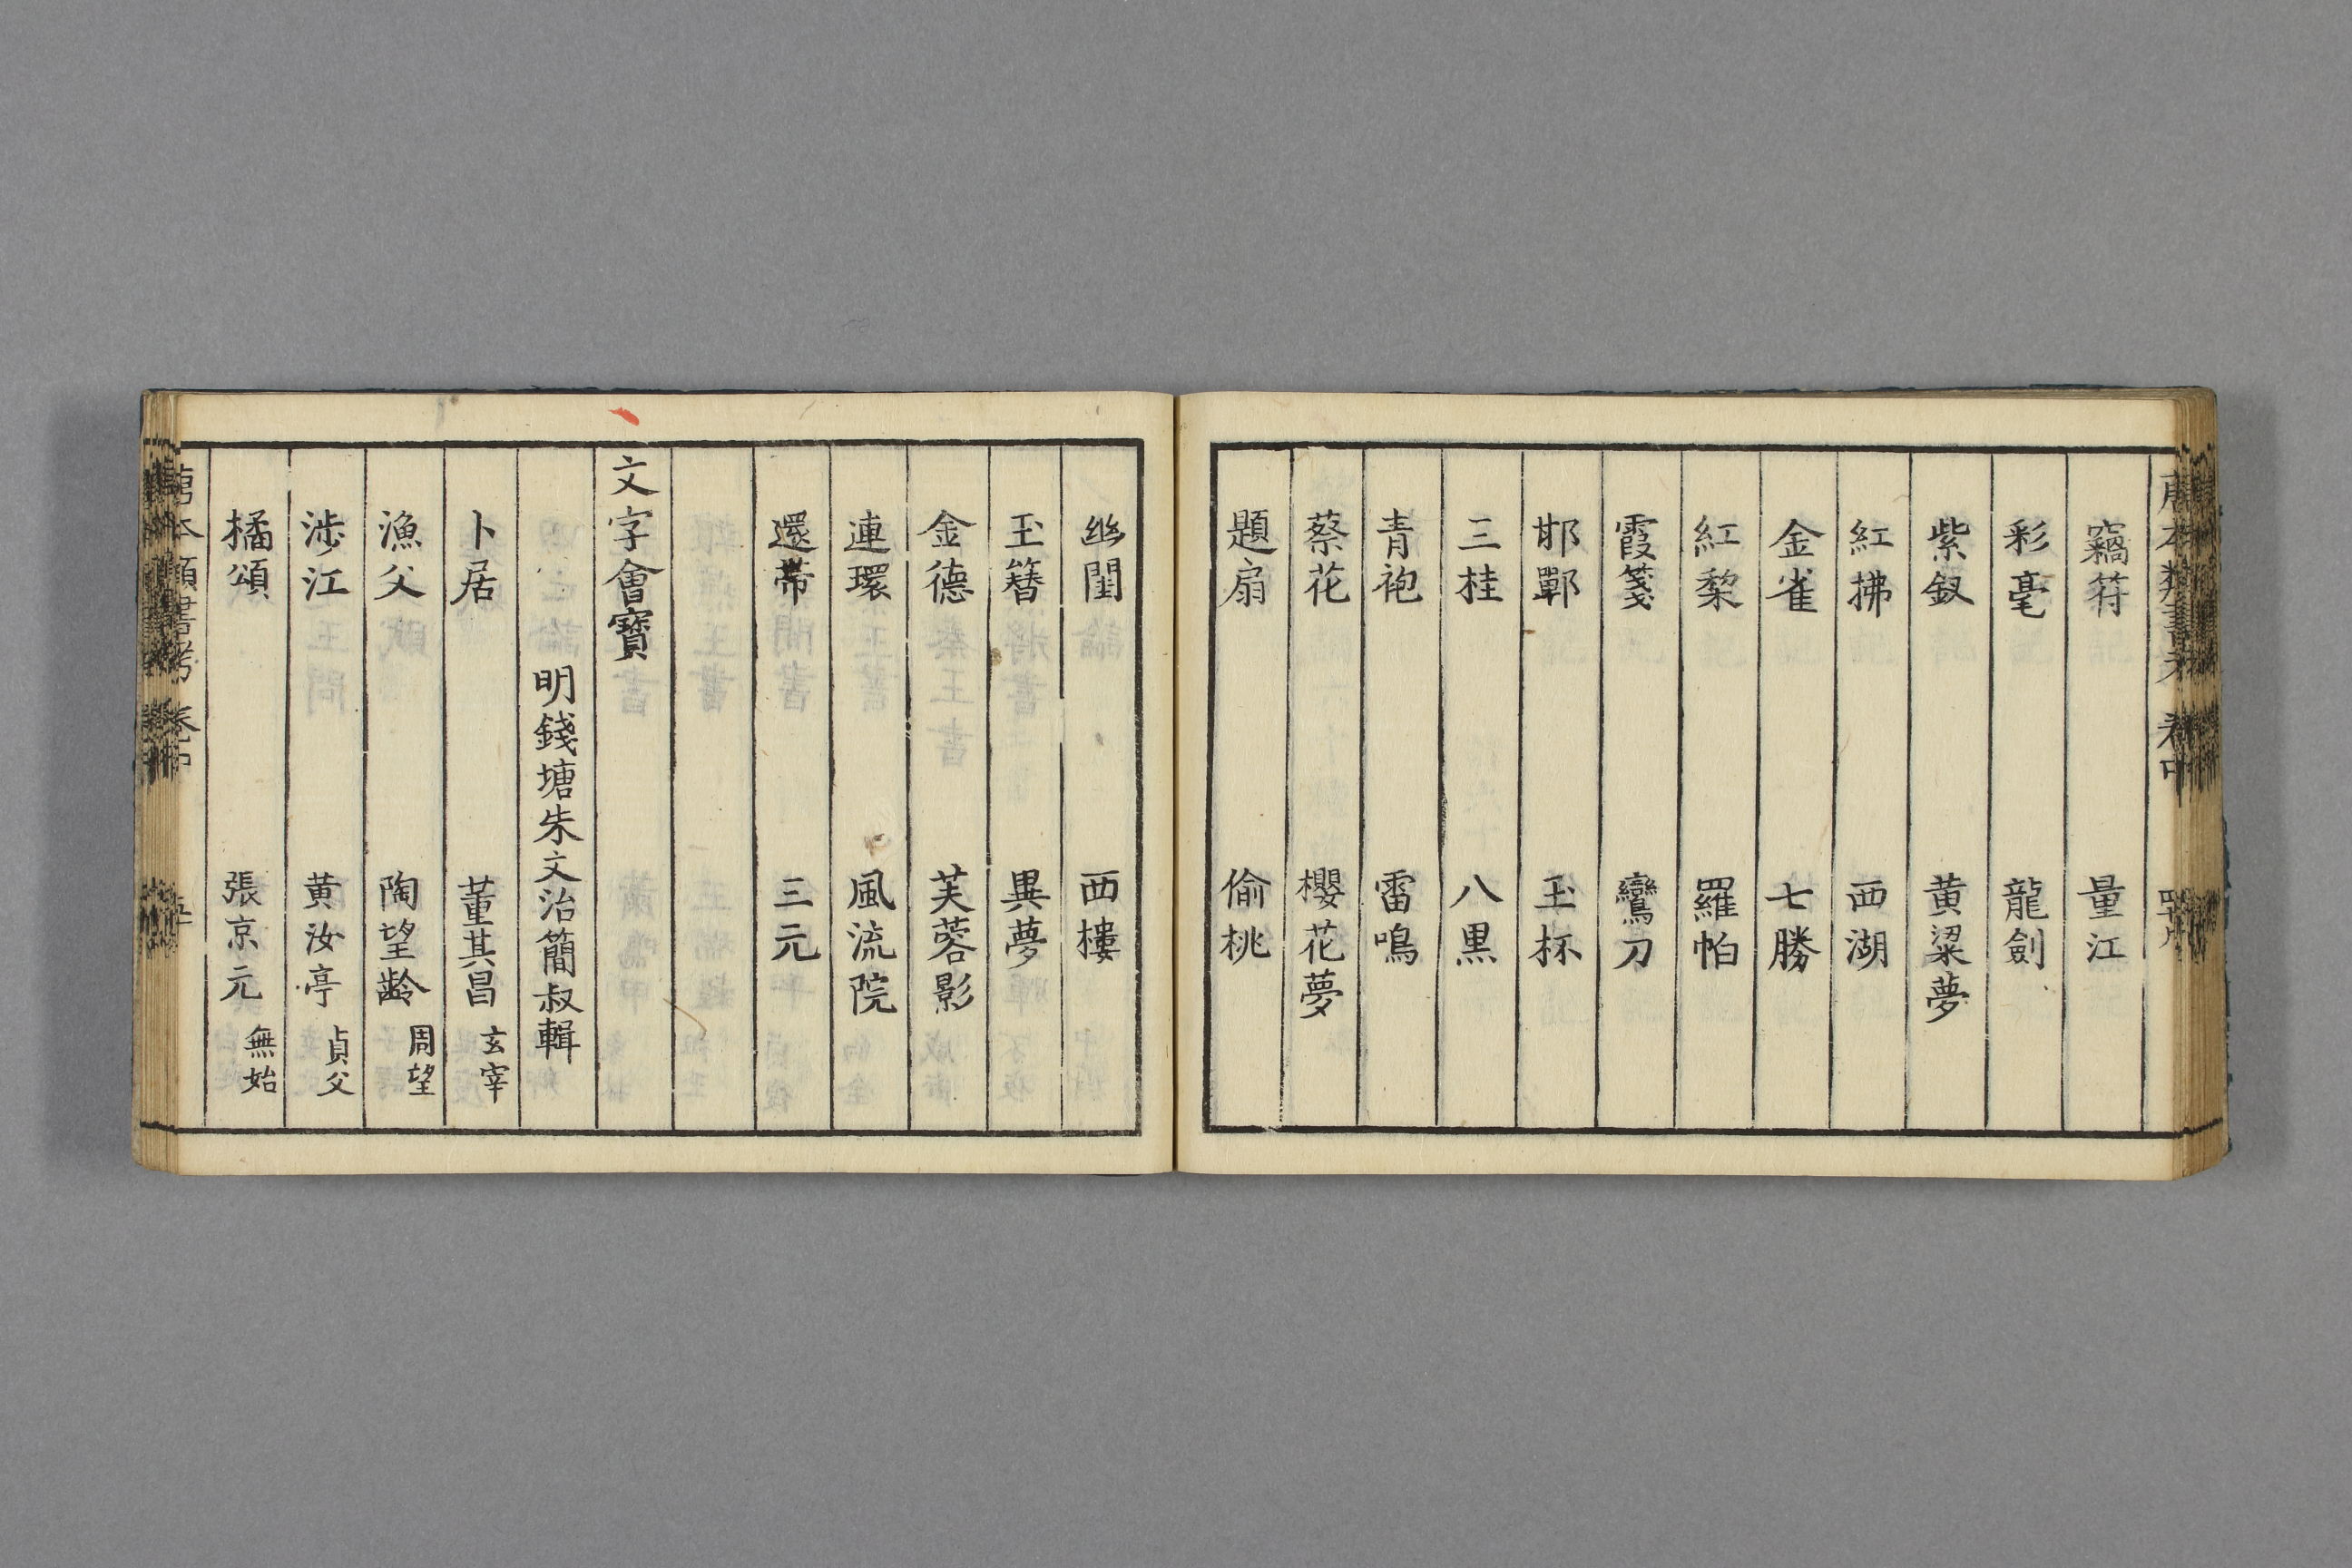 竊符 量江
彩毫 龍劍
紫釵 黄粱夢
紅拂 西湖
金雀 七勝
紅棃 羅帕
霞箋 鸞刀
邯鄲 玉杯
三桂 八黒
青袍 雷鳴
蔡花 櫻花夢
題扇 偷桃
幽閨 西樓
玉簪 異夢
金德 芙蓉影
連環 風流院
還帶 三元
文字會寶
明錢塘朱文治簡叔輯
卜居 董其昌 玄宰
漁父 陶望齡 周望
涉江 黄汝亭 貞父
橘頌 張京元 無始